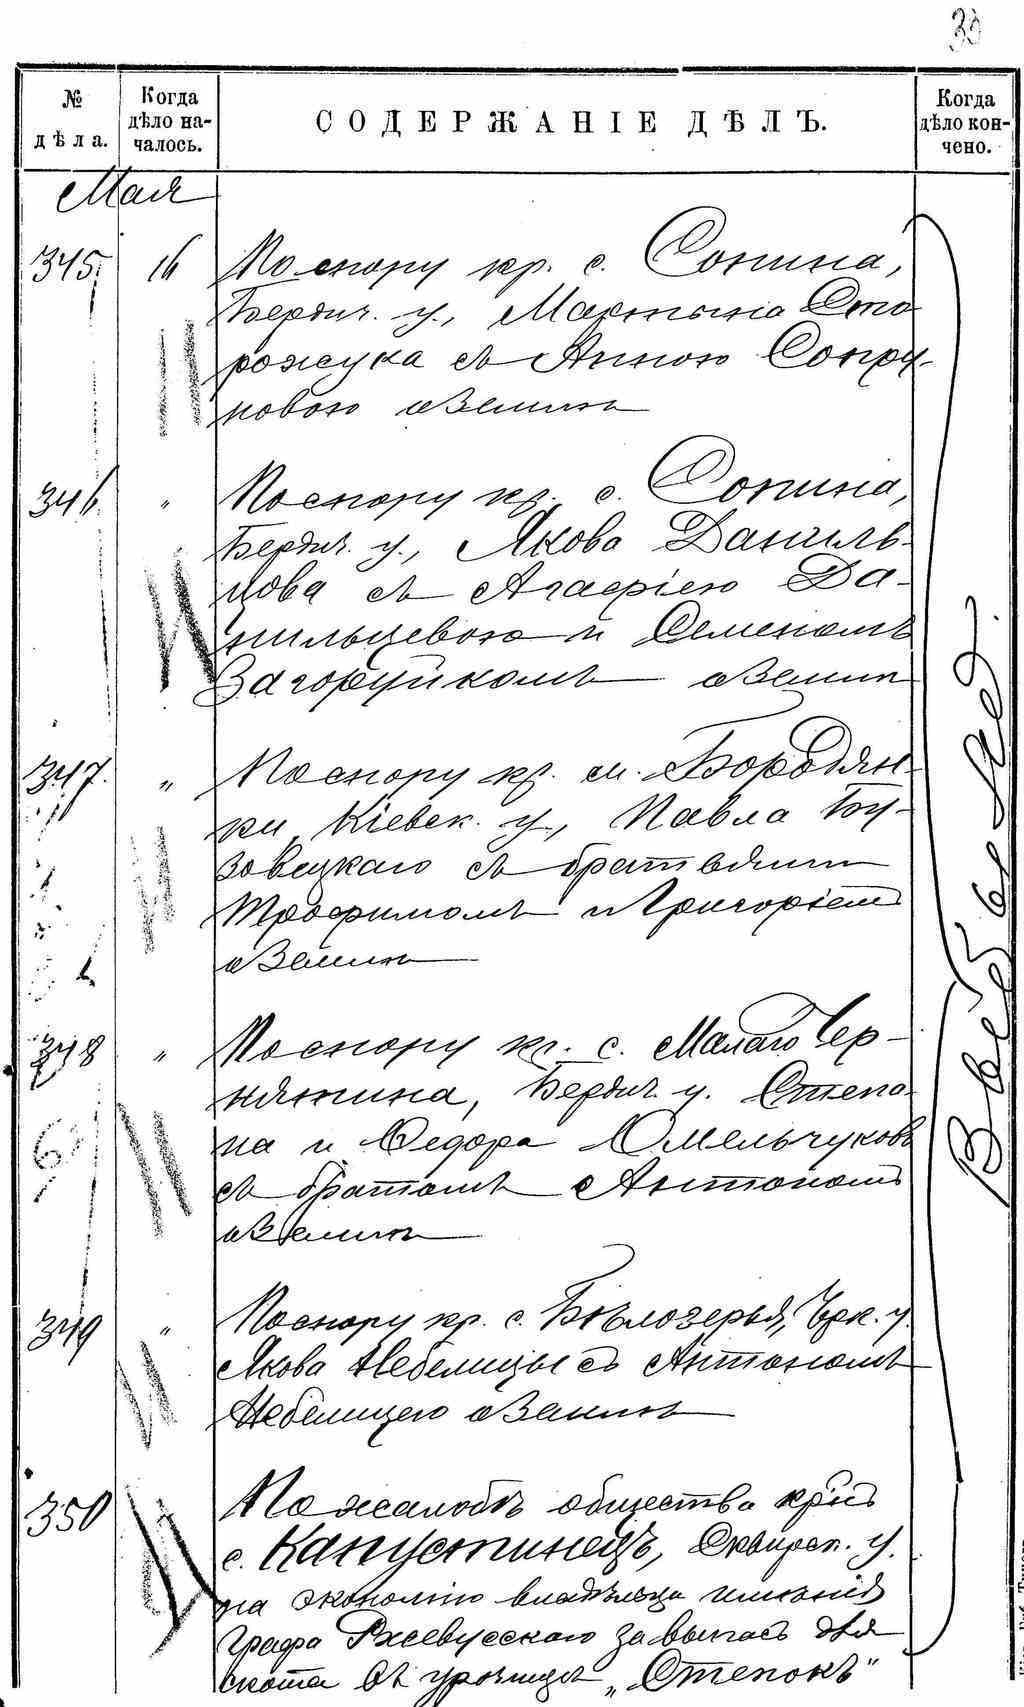 39
№ дѣла.
Когда дѣло началось.
СОДЕРЖАНІЕ ДѢЛЪ.
Когда дѣло кончено.
Мая
345 16 По спору кр. с. Сопина,
Бердич. у., Мартына Сто
рожука съ Анною Сопру-
новою о землѣ
346 " По спору кр. с. Сопина,
Бердич. у., Якова Даниль-
цова съ Агафіею Да-
нильцевою и Семеномъ
Загоруйкомъ о землѣ
347. " По спору кр. м. Бородян-
ки, Кіевск. у., Павла Бу-
зовецкаго съ братьями
Трофимомъ и Григоріемъ
о землѣ
348 " По спору кр. с. Малаго Чер-
нятина, Бердич. у. Степа-
на и Федора Омельчуковъ
съ братомъ Антономъ
о землѣ
349 " По спору кр. с. Бѣлозерья, Чрк. у.
Якова Небелицы съ Антономъ
Небелицею о землѣ
350 По жалобѣ общества кр-нъ
с. Капустинецъ, Сквирск. у.
на экономію владѣльца имѣнія
графа Ржевусскаго за выпасъ для
скота въ урочищѣ „Степокъ"